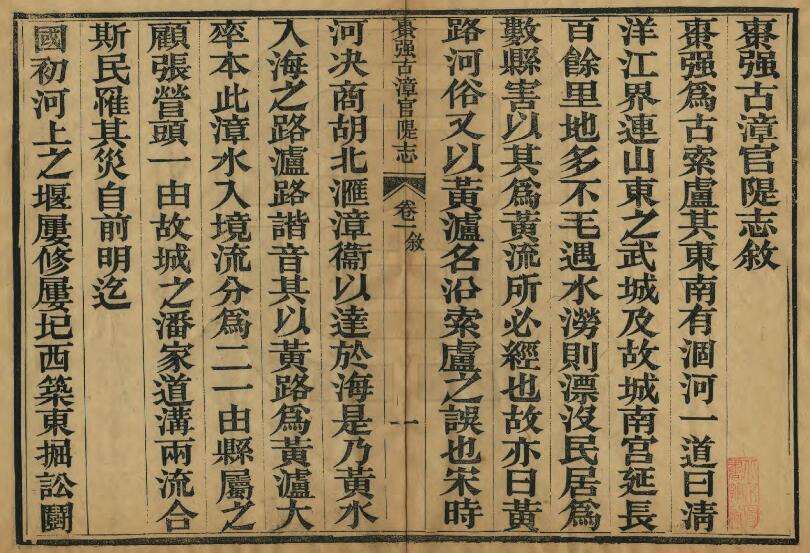 棗强古漳官隄志敘
棗强爲古索盧其東南有涸河一道曰清
洋江界連山東之武城及故城南宮延長
百餘里地多不毛遇水澇則漂沒民居爲
數縣害以其爲黃流所必經也故亦曰黃
路河俗又以黃瀘名沿索盧之誤也宋時
棗强古漳官隄志
卷一 敘
一
河决商胡北滙漳衞以達於海是乃黃水
入海之路瀘路諧音其以黃路爲黃瀘大
率本此漳水入境流分爲二一由縣屬之
顧張營頭一由故城之潘家道溝兩流合
斯民罹其災自前明迄
國初河上之堰屢修屢圮西築東掘訟鬭